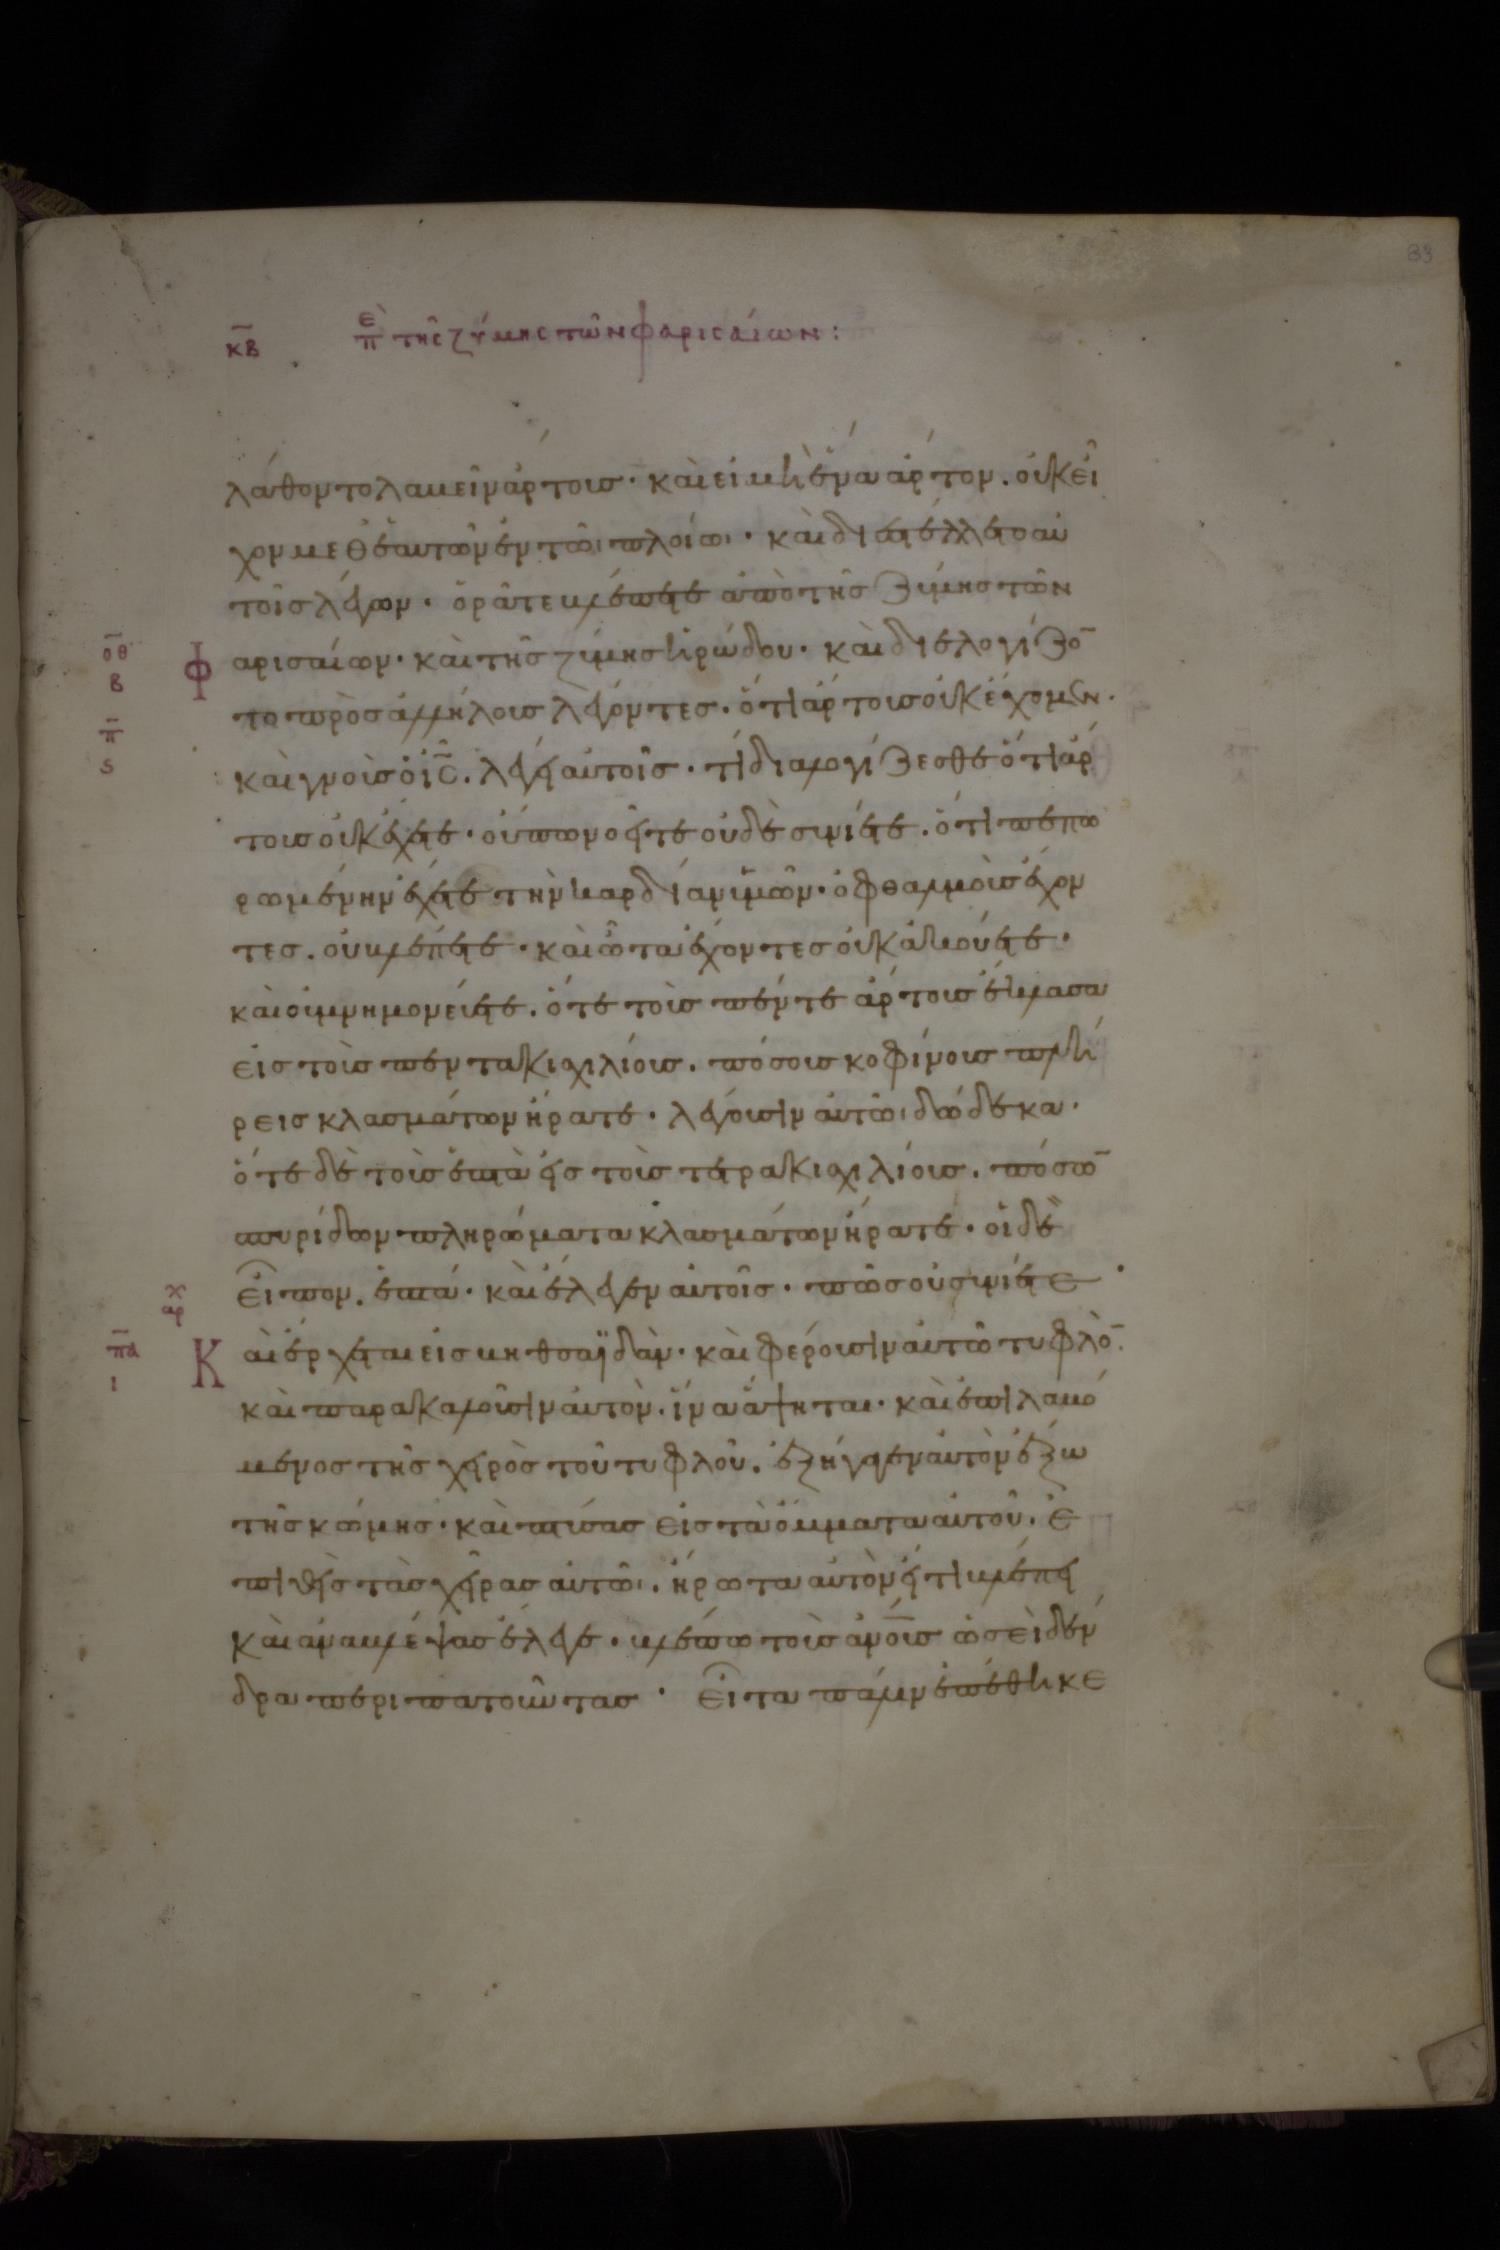 83
κβ ἐπὶ τῆς ζύμης τῶν φαρισαίων:
λάθοντο λαβεῖν ἄρτους· καὶ εἰ μὴ ἕνα ἄρτον. οὐκ εἶ
χον μεθ ἑαυτῶν ἐν τῶι πλοίωι· καὶ διεστέλλετο αὐ
τοῖς λέγων· ὁρᾶτε βλέπετε ἀπὸ τῆς ζύμης τῶν
οθ β Φαρισαίων· καὶ τῆς ζύμης ἡρώδου· καὶ διελογίζο̄
π ϛ το πρὸς ἀλλήλους λέγοντες. ὅτι ἄρτους οὐκ ἔχομεν.
καὶ γνοὺς ὁ ις̄. λέγει αὐτοῖς· τί διαλογίζεσθε ὅτι ἄρ
τους οὐκ ἔχετε· οὔπω νοεῖτε οὐδὲ συνίετε. ὅτι πεπω
ρωμένην ἔχετε τὴν καρδίαν ὑμῶν· ὀφθαλμοὺς ἔχον
τες. οὐ βλέπετε· καὶ ὦτα ἔχοντες οὐκ ἀκούετε·
καὶ οὐ μνημονεύετε. ὅτε τοὺς πέντε ἄρτους ἔκλασα
εἰς τοὺς πεντακισχιλίους. πόσους κοφίνους πλή
ρεις κλασμάτων ἤρατε· λέγουσιν αὐτῶι δώδεκα·
ὅτε δὲ τοὺς ἑπτὰ εἰς τοὺς τετρακισχιλίους. πόσω̄
σπυρίδων πληρώματα κλασμάτων ἤρατε· οἱ δὲ
εἶπον. ἑπτά· καὶ ἔλεγεν αὐτοῖς· πῶς οὐ συνίετε·
χ αρ
πα ι Καὶ ἔρχεται εἰς βηθσαϊδὰν· καὶ φέρουσιν αὐτῶ τυφλὸ̄.
καὶ παρακαλοῦσιν αὐτὸν. ἵνα ἅψηται· καὶ ἐπιλαβό
μενος τῆς χειρὸς τοῦ τυφλοῦ. ἐξήγαγεν αὐτὸν ἔξω
τῆς κώμης· καὶ πτύσας εἰς τὰ ὄμματα αὐτοῦ. ἐ
πιθεὶς τὰς χεῖρας αὐτῶι. ἠρώτα αὐτὸν εἴ τι βλέπει
καὶ ἀναβλέψας ἔλεγε· βλέπω τοὺς ἀν̄ους ὡσεὶ δέν
δρα περιπατοῦντας· εἶτα πάλιν ἐπέθηκε